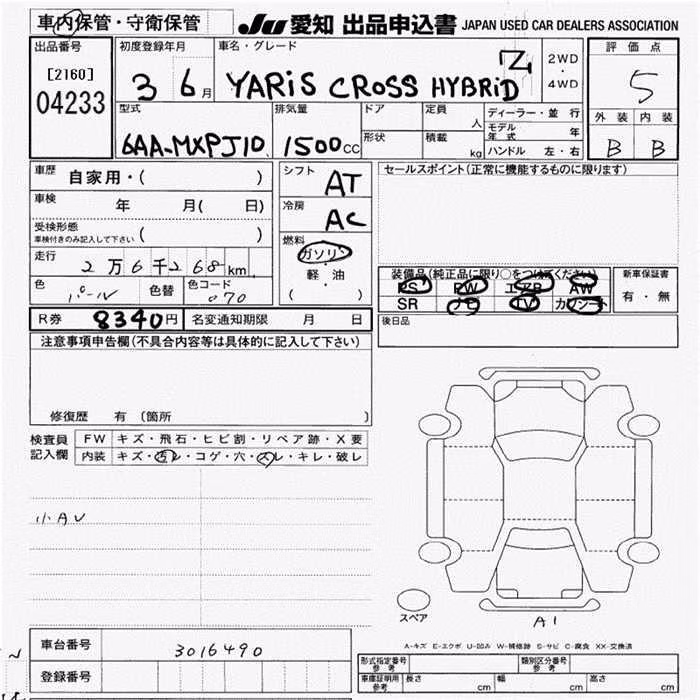 車内保管・守衛保管 JU 愛知 出品申込書 JAPAN USED CAR DEALERS ASSOCIATION
出品番号 初度登録年月 車名・グレード 評価点
[2160] 3 6月 YARIS CROSS HYBRID Z 2WD・4WD 5
04233
型式 排気量 ドア 定員 人 ディーラー・並行 外装 内装
6AA-MXPJ10 1500cc 形状 積載 kg モデル年式 年 B B
ハンドル 左・右
車歴 自家用・( ) シフト AT セールスポイント(正常に機能するものに限ります)
車検 年 月( 日) 冷房 AC
受検形態 ( )
車検付きのみ記入して下さい
燃料
走行 2万6千268km ガソリン 装備品(純正品に限り○をつけてください) 新車保証書
軽・油
色 パール 色替 色コード 070 ( ) PS PW エアB AW 有・無
SR ナビ TV カワシート
R券 8340円 名変通知期限 月 日 後日品
注意事項申告欄(不具合内容等は具体的に記入して下さい)
修復歴 有(箇所 )
検査員 FW キズ・飛石・ヒビ割・リペア跡・X要
記入欄 内装 キズ・汚レ・コゲ・穴・スレ・キレ・破レ
小AU
スペア A1
A-キズ E-エクボ U-凹み W-補修跡 S-サビ C-腐食 XX-交換済
車台番号 3016490
型式指定番号 参考 類別区分番号 参考
登録番号 車庫証明用 参考 長さ cm 幅 cm 高さ cm